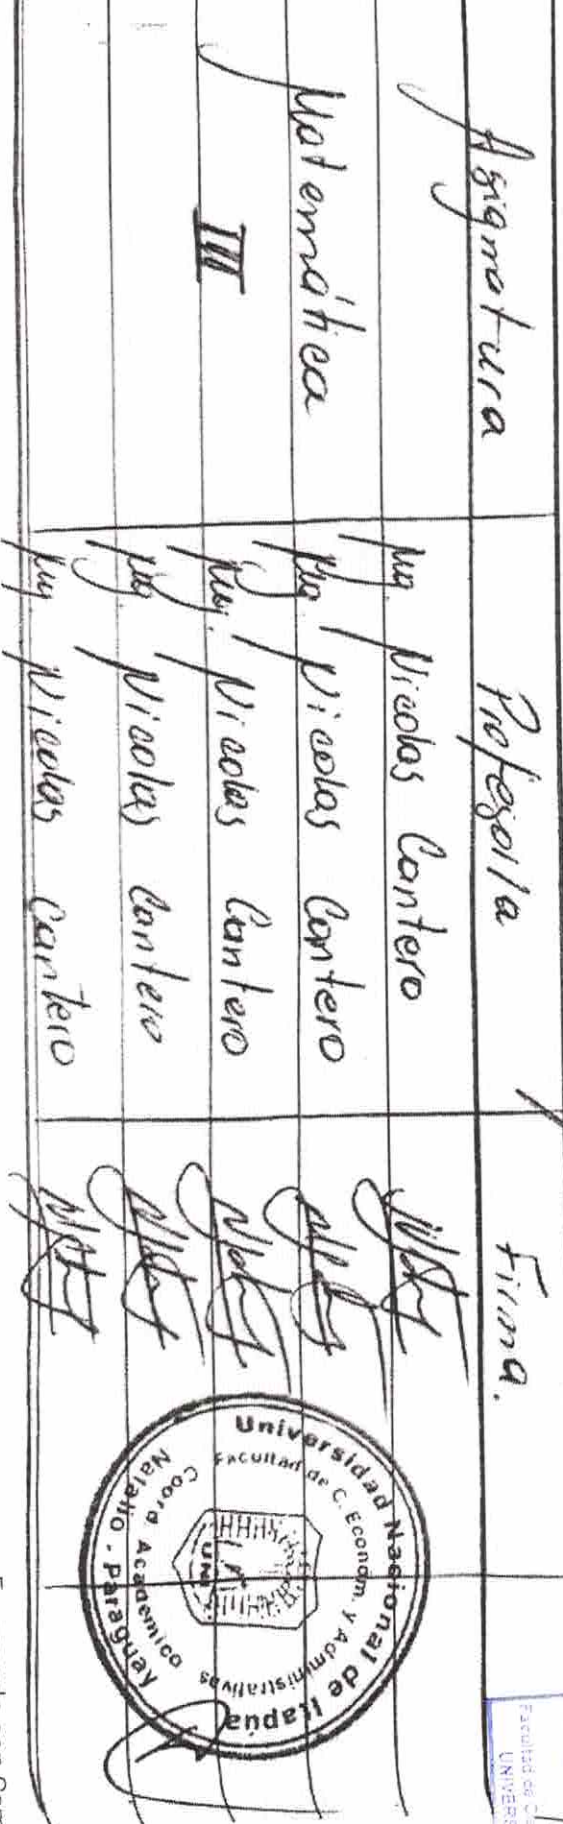 Asignatura Profesor/a Firma.
Mg. Nicolas Cantero
Matemática Mg. Nicolas Cantero
III Mg. Nicolas Cantero
Mg. Nicolas Cantero
Mg. Nicolas Cantero
Universidad Nacional de Itapúa
Facultad de C. Econom. y Administrativas
Coord. Academico
Natalio - Paraguay
UNI
Facultad de
UNIVERS